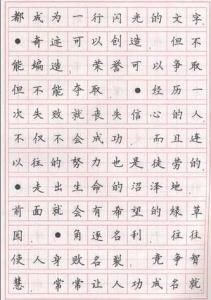 都成为一行闪光的文字
●奇迹可以创造 但不
能编造 荣誉可以争取
但不能夺取 ●经历一
次失败就丧失信心的人
不仅不会成功 而且连
以往的努力也是徒劳的
●走出生命的沼泽地
前面就会有希望的绿草
园 ●角逐名利 往往
使人身败名裂 竞争智
慧 常常让人功成名就